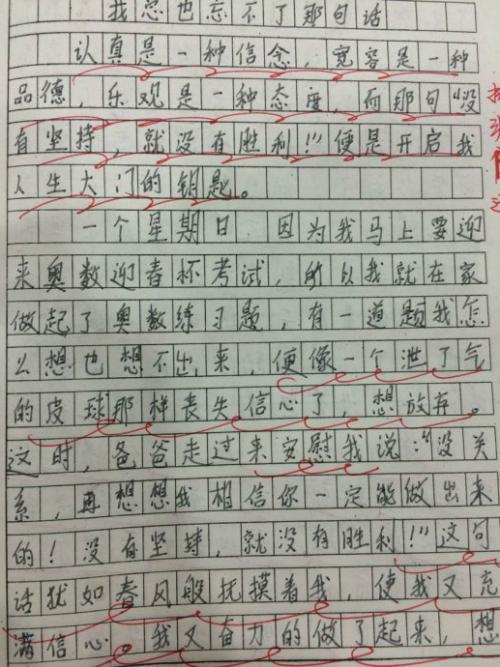 我总也忘不了那句话
认真是一种信念，宽容是一种
品德，乐观是一种态度，而那句“没
有坚持，就没有胜利！”便是开启我
人生大门的钥匙。
一个星期日 因为我马上要迎
来奥数迎春杯考试，所以我就在家
做起了奥数练习题，有一道题我怎
么想也想不出来，便像一个泄了气
的皮球那样丧失信心了，想放弃。
这时，爸爸走过来安慰我说：“没关
系，再想想我相信你一定能做出来
的！没有坚持，就没有胜利！”这句
话犹如春风般抚摸着我，使我又充
满信心。我又奋力的做了起来，想